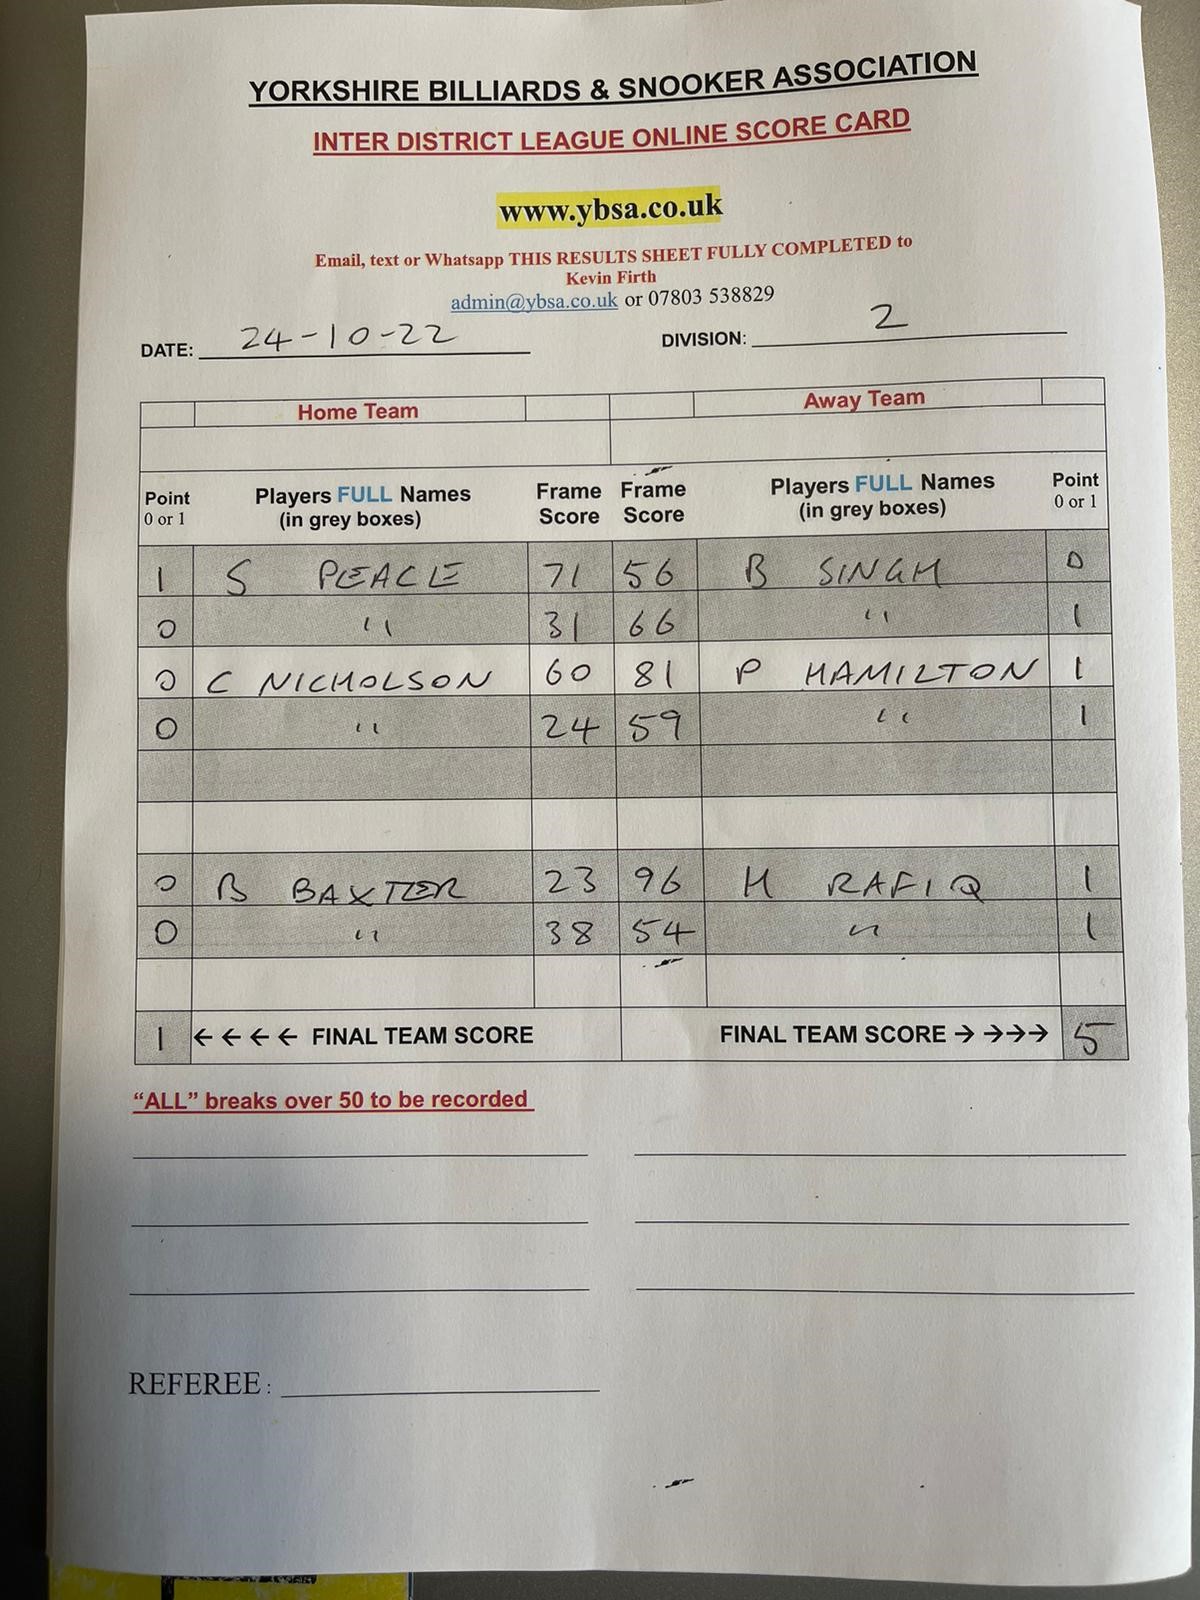 YORKSHIRE BILLIARDS & SNOOKER ASSOCIATION
INTER DISTRICT LEAGUE ONLINE SCORE CARD
www.ybsa.co.uk
Email, text or Whatsapp THIS RESULTS SHEET FULLY COMPLETED to
Kevin Firth
admin@ybsa.co.uk or 07803 538829
DATE: 24-10-22 DIVISION: 2
Home Team Away Team
Point Players FULL Names Frame Frame Players FULL Names Point
0 or 1 (in grey boxes) Score Score (in grey boxes) 0 or 1
1 S PEACLE 71 56 B SINGH 0
0 " 31 66 " 1
0 C NICHOLSON 60 81 P HAMILTON 1
0 " 24 59 " 1
0 B BAXTER 23 96 H RAFIQ 1
0 " 38 54 " 1
1 ← ← ← ← FINAL TEAM SCORE FINAL TEAM SCORE → →→→ 5
“ALL” breaks over 50 to be recorded
REFEREE: